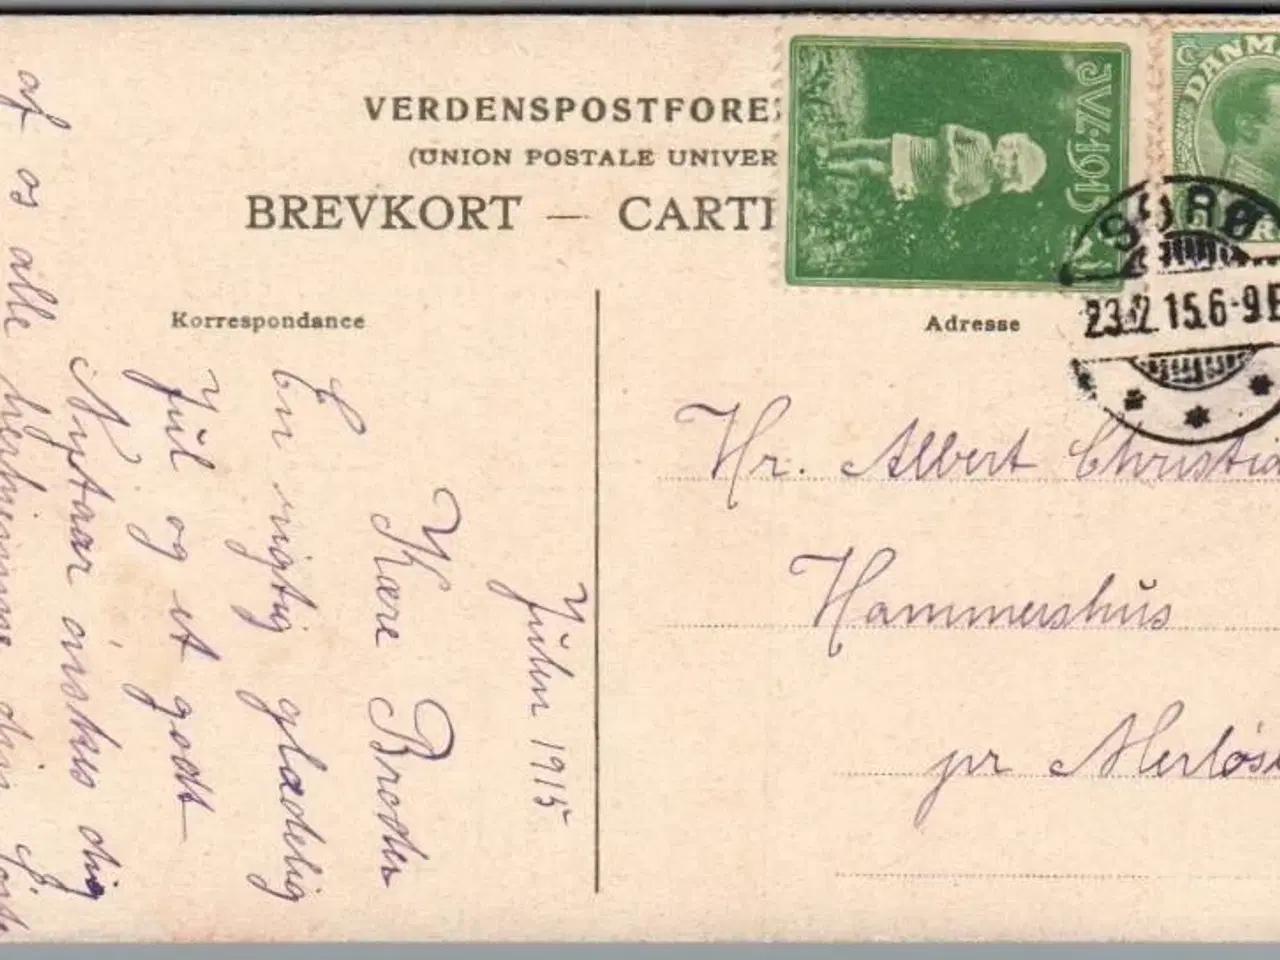 VERDENSPOSTFORE
(UNION POSTALE UNIVER
BREVKORT — CARTE
JUL·1915
DANM
SORØ
23.12.15.6-9E
Korrespondance
Adresse
Julen 1915
Kære Broder
En rigtig glædelig
Jul og et godt
Nytaar ønskes dig
af os alle
Hr. Albert Christia
Hammershus
pr Merløse